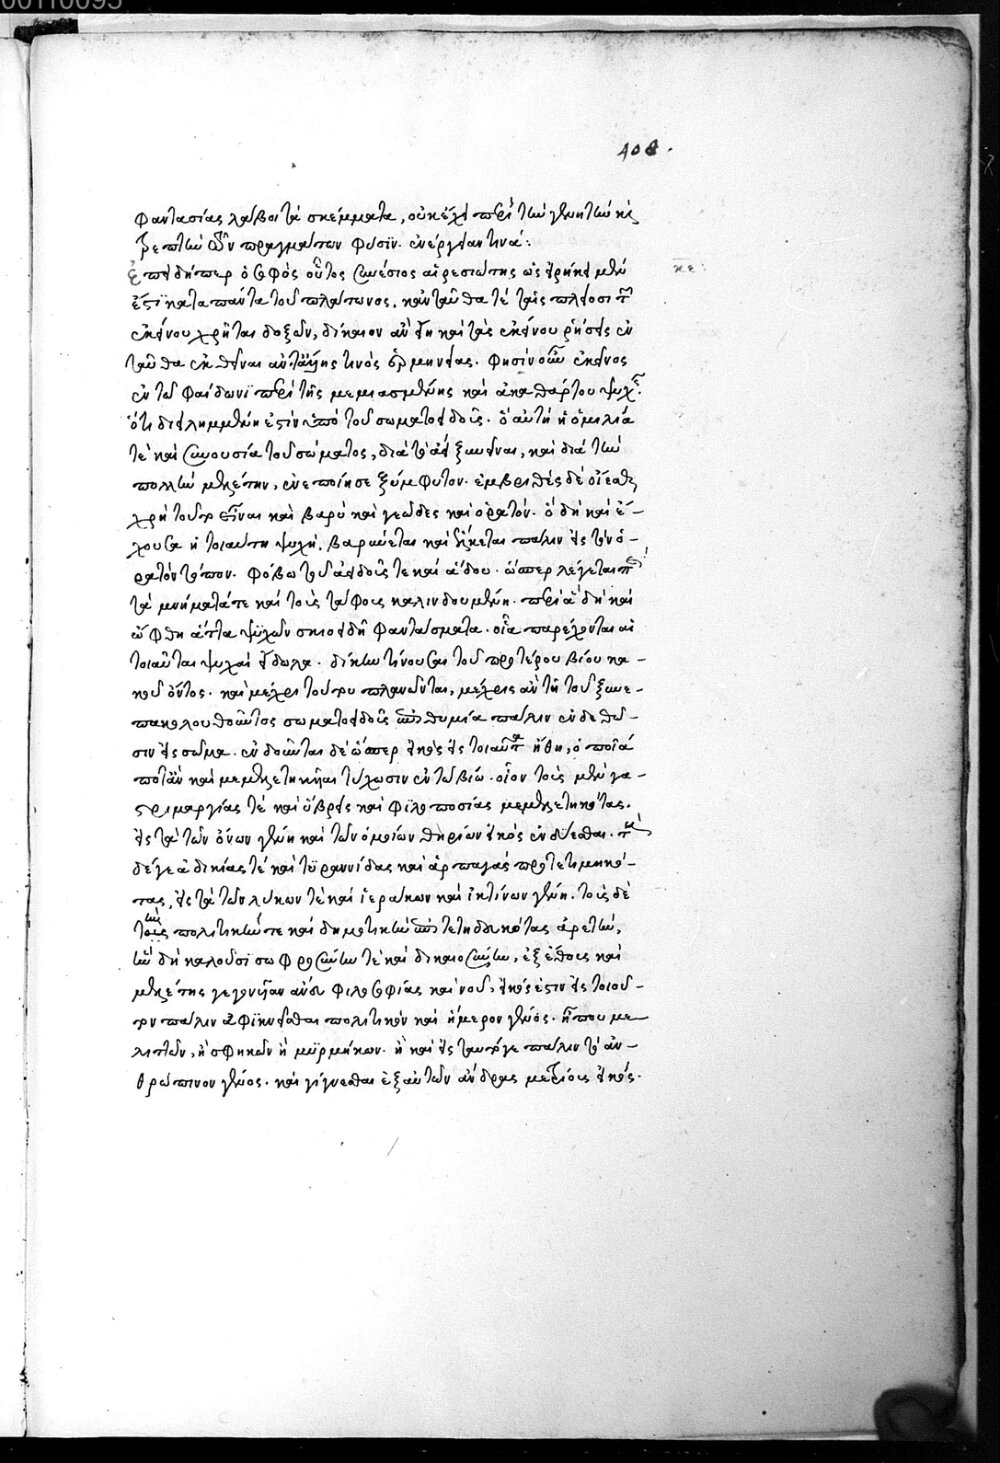 00110095
408.
φαντασίας λάβοι τὰ σκέμματα, οὐκ ἔχει περὶ τῶν γενητῶν καὶ
ῥευστῶν ὧν πραγμάτων φύσιν. ἐνέργειαν τινά:
κε:
Ἐπειδήπερ ὁ σοφὸς οὗτος Συνέσιος αἱρεσιώτης ὡς εἰρήκειμεν
ἐστὶ κατὰ πάντα τοῦ πλάτωνος, κἀνταῦθα τὲ ταῖς πλείοσι τῶν
ἐκείνου χρῆται δοξῶν, δίκαιον ἂν εἴη καὶ τὰς ἐκείνου ῥήσεις ἐν
ταῦθα ἐκθεῖναι ἀντ' ἄλλης τινὸς ἑρμηνείας. φησὶν οὖν ἐκεῖνος
ἐν τῷ φαίδωνι περὶ τῆς μεμιασμένης καὶ ἀκαθάρτου ψυχῆς.
ὅτι διειλημμένη ἐστὶν ὑπὸ τοῦ σωματοειδοῦς. ὃ αὐτῇ ἡ ὁμιλία
τὲ καὶ συνουσία τοῦ σώματος, διὰ τὸ ἀεὶ ξυνεῖναι, καὶ διὰ τὴν
πολλὴν μελέτην, ἐνεποίησε ξύμφυτον. ἐμβριθὲς δὲ οἴεσθαι
χρὴ τοῦτο εἶναι καὶ βαρὺ καὶ γεῶδες καὶ ὁρατόν. ὃ δὴ καὶ ἔ-
χουσα ἡ τοιαύτη ψυχὴ, βαρύνεται καὶ ἕλκεται πάλιν εἰς τὸν ὁ-
ρατὸν τόπον. φόβω τοῦ ἀειδοῦς τε καὶ ἅδου. ὥσπερ λέγεται περὶ
τὰ μνήματά τε καὶ τοὺς τάφους καλινδουμένη. περὶ ἃ δὴ καὶ
ὤφθη ἄττα ψυχῶν σκιοειδῆ φαντάσματα. οἷα παρέχονται αἱ
τοιαῦται ψυχαὶ εἴδωλα. δίκην τίνουσαι τοῦ προτέρου βίου κα-
κοῦ ὄντος. καὶ μέχρι τούτου πλανῶνται, μέχρις ἂν τῇ τοῦ ξυνε-
πακολουθοῦντος σωματοειδοῦς ἐπιθυμία πάλιν ἐνδεθῶ-
σιν εἰς σῶμα. ἐνδοῦνται δὲ ὥσπερ εἰκὸς εἰς τοιαῦτα ἤθη, ὁποῖά
ποτ' ἂν καὶ μεμελετηκυῖαι τύχωσιν ἐν τῶ βίω. οἷον τοὺς μὲν γα-
στριμαργίας τὲ καὶ ὕβρεις καὶ φιλοποσίας μεμελετηκότας.
εἰς τὰ τῶν ὄνων γένη καὶ τῶν ὁμοίων θηρίων εἰκὸς ἐνδύεσθαι. τοὺς
δέ γε ἀδικίας τὲ καὶ τυραννίδας καὶ ἁρπαγὰς προτετιμηκό-
τας, εἰς τὰ τῶν λύκων τὲ καὶ ἱεράκων καὶ ἰκτίνων γένη. τοὺς δὲ
τὴν πολιτικήν τε καὶ δημοτικὴν ἐπιτετηδευκότας ἀρετὴν,
ἣν δὴ καλοῦσι σωφροσύνην τὲ καὶ δικαιοσύνην, ἐξ ἔθους καὶ
μελέτης γεγονυῖαν ἄνευ φιλοσοφίας καὶ νοῦ, εἰκός ἐστιν εἰς τοιοῦ-
τον πάλιν ἀφικνεῖσθαι πολιτικὸν καὶ ἥμερον γένος. ἤ που με-
λιττῶν, ἢ σφηκῶν ἢ μυρμήκων. ἢ καὶ εἰς ταυτό γε πάλιν τὸ ἀν-
θρώπινον γένος. καὶ γίγνεσθαι ἐξ αὐτῶν ἄνδρας μετρίους εἰκός.